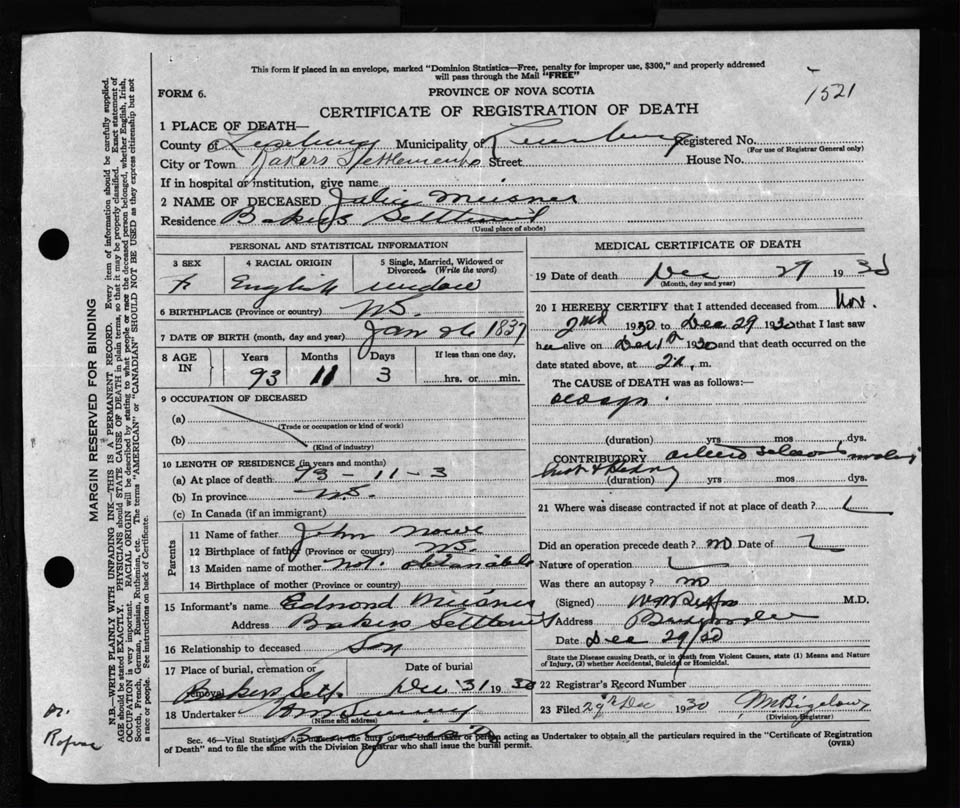 This form if placed in an envelope, marked "Dominion Statistics—Free, penalty for improper use, $300," and properly addressed
will pass through the Mail "FREE"
1521
FORM 6.
PROVINCE OF NOVA SCOTIA
CERTIFICATE OF REGISTRATION OF DEATH
1 PLACE OF DEATH—
County of Lunenburg Municipality of Lunenburg Registered No.
(For use of Registrar General only)
City or Town Bakers Settlement Street House No.
If in hospital or institution, give name
2 NAME OF DECEASED Julia Meisner
Residence Bakers Settlement
(Usual place of abode)
PERSONAL AND STATISTICAL INFORMATION
3 SEX 4 RACIAL ORIGIN 5 Single, Married, Widowed or Divorced. (Write the word)
F English widow
6 BIRTHPLACE (Province or country) NS.
7 DATE OF BIRTH (month, day and year) Jan 26 1837
8 AGE IN Years Months Days If less than one day,
93 11 3 hrs. or min.
9 OCCUPATION OF DECEASED
(a)
(Trade or occupation or kind of work)
(b)
(Kind of industry)
10 LENGTH OF RESIDENCE (in years and months)
(a) At place of death 93 - 11 - 3
(b) In province NS.
(c) In Canada (if an immigrant)
Parents
11 Name of father John Nowe
12 Birthplace of father (Province or country) NS.
13 Maiden name of mother not obtainable
14 Birthplace of mother (Province or country)
15 Informant's name Edmond Meisner
Address Bakers Settlement
16 Relationship to deceased Son
17 Place of burial, cremation or removal Date of burial
Bakers Sett. Dec 31 1930
18 Undertaker
(Name and address)
MEDICAL CERTIFICATE OF DEATH
19 Date of death Dec 29 1930
(Month, day and year)
20 I HEREBY CERTIFY that I attended deceased from Nov.
2nd 1930 to Dec 29 1930 that I last saw
her alive on Dec 1st 1930 and that death occurred on the
date stated above, at m.
The CAUSE OF DEATH was as follows:—
old age.
(duration) yrs mos dys.
CONTRIBUTORY
(duration) yrs mos dys.
21 Where was disease contracted if not at place of death?
Did an operation precede death? no Date of
Nature of operation
Was there an autopsy? no
(Signed) M.D.
Address Bridgewater
Date Dec 29/30
State the Disease causing Death, or in death from Violent Causes, state (1) Means and Nature
of Injury, (2) whether Accidental, Suicidal or Homicidal.
22 Registrar's Record Number
23 Filed 29th Dec 1930 M Bigelow
(Division Registrar)
Sec. 46—Vital Statistics Act the duty of the Undertaker or person acting as Undertaker to obtain all the particulars required in the "Certificate of Registration
of Death" and to file the same with the Division Registrar who shall issue the burial permit.
(OVER)
MARGIN RESERVED FOR BINDING
N.B.—WRITE PLAINLY WITH UNFADING INK—THIS IS A PERMANENT RECORD. Every item of information should be carefully supplied.
AGE should be stated EXACTLY. PHYSICIANS should STATE CAUSE OF DEATH in plain terms, so that it may be properly classified. Exact statement of
OCCUPATION is very important. RACIAL ORIGIN will be described by stating to what people or race the deceased person belonged, whether English, Irish,
Scotch, French, German, Russian, Ruthenian, etc. The terms "AMERICAN" or "CANADIAN" SHOULD NOT BE USED as they express citizenship but not
a race or people. See instructions on back of Certificate.